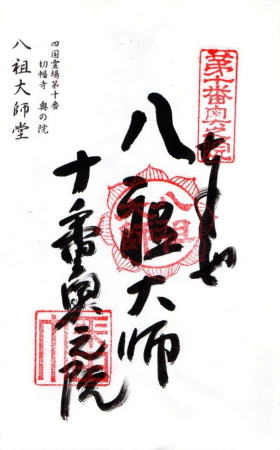 第十番奥之院
八祖大師
十番奥之院
四国霊場第十番
切幡寺 奥の院
八祖大師堂